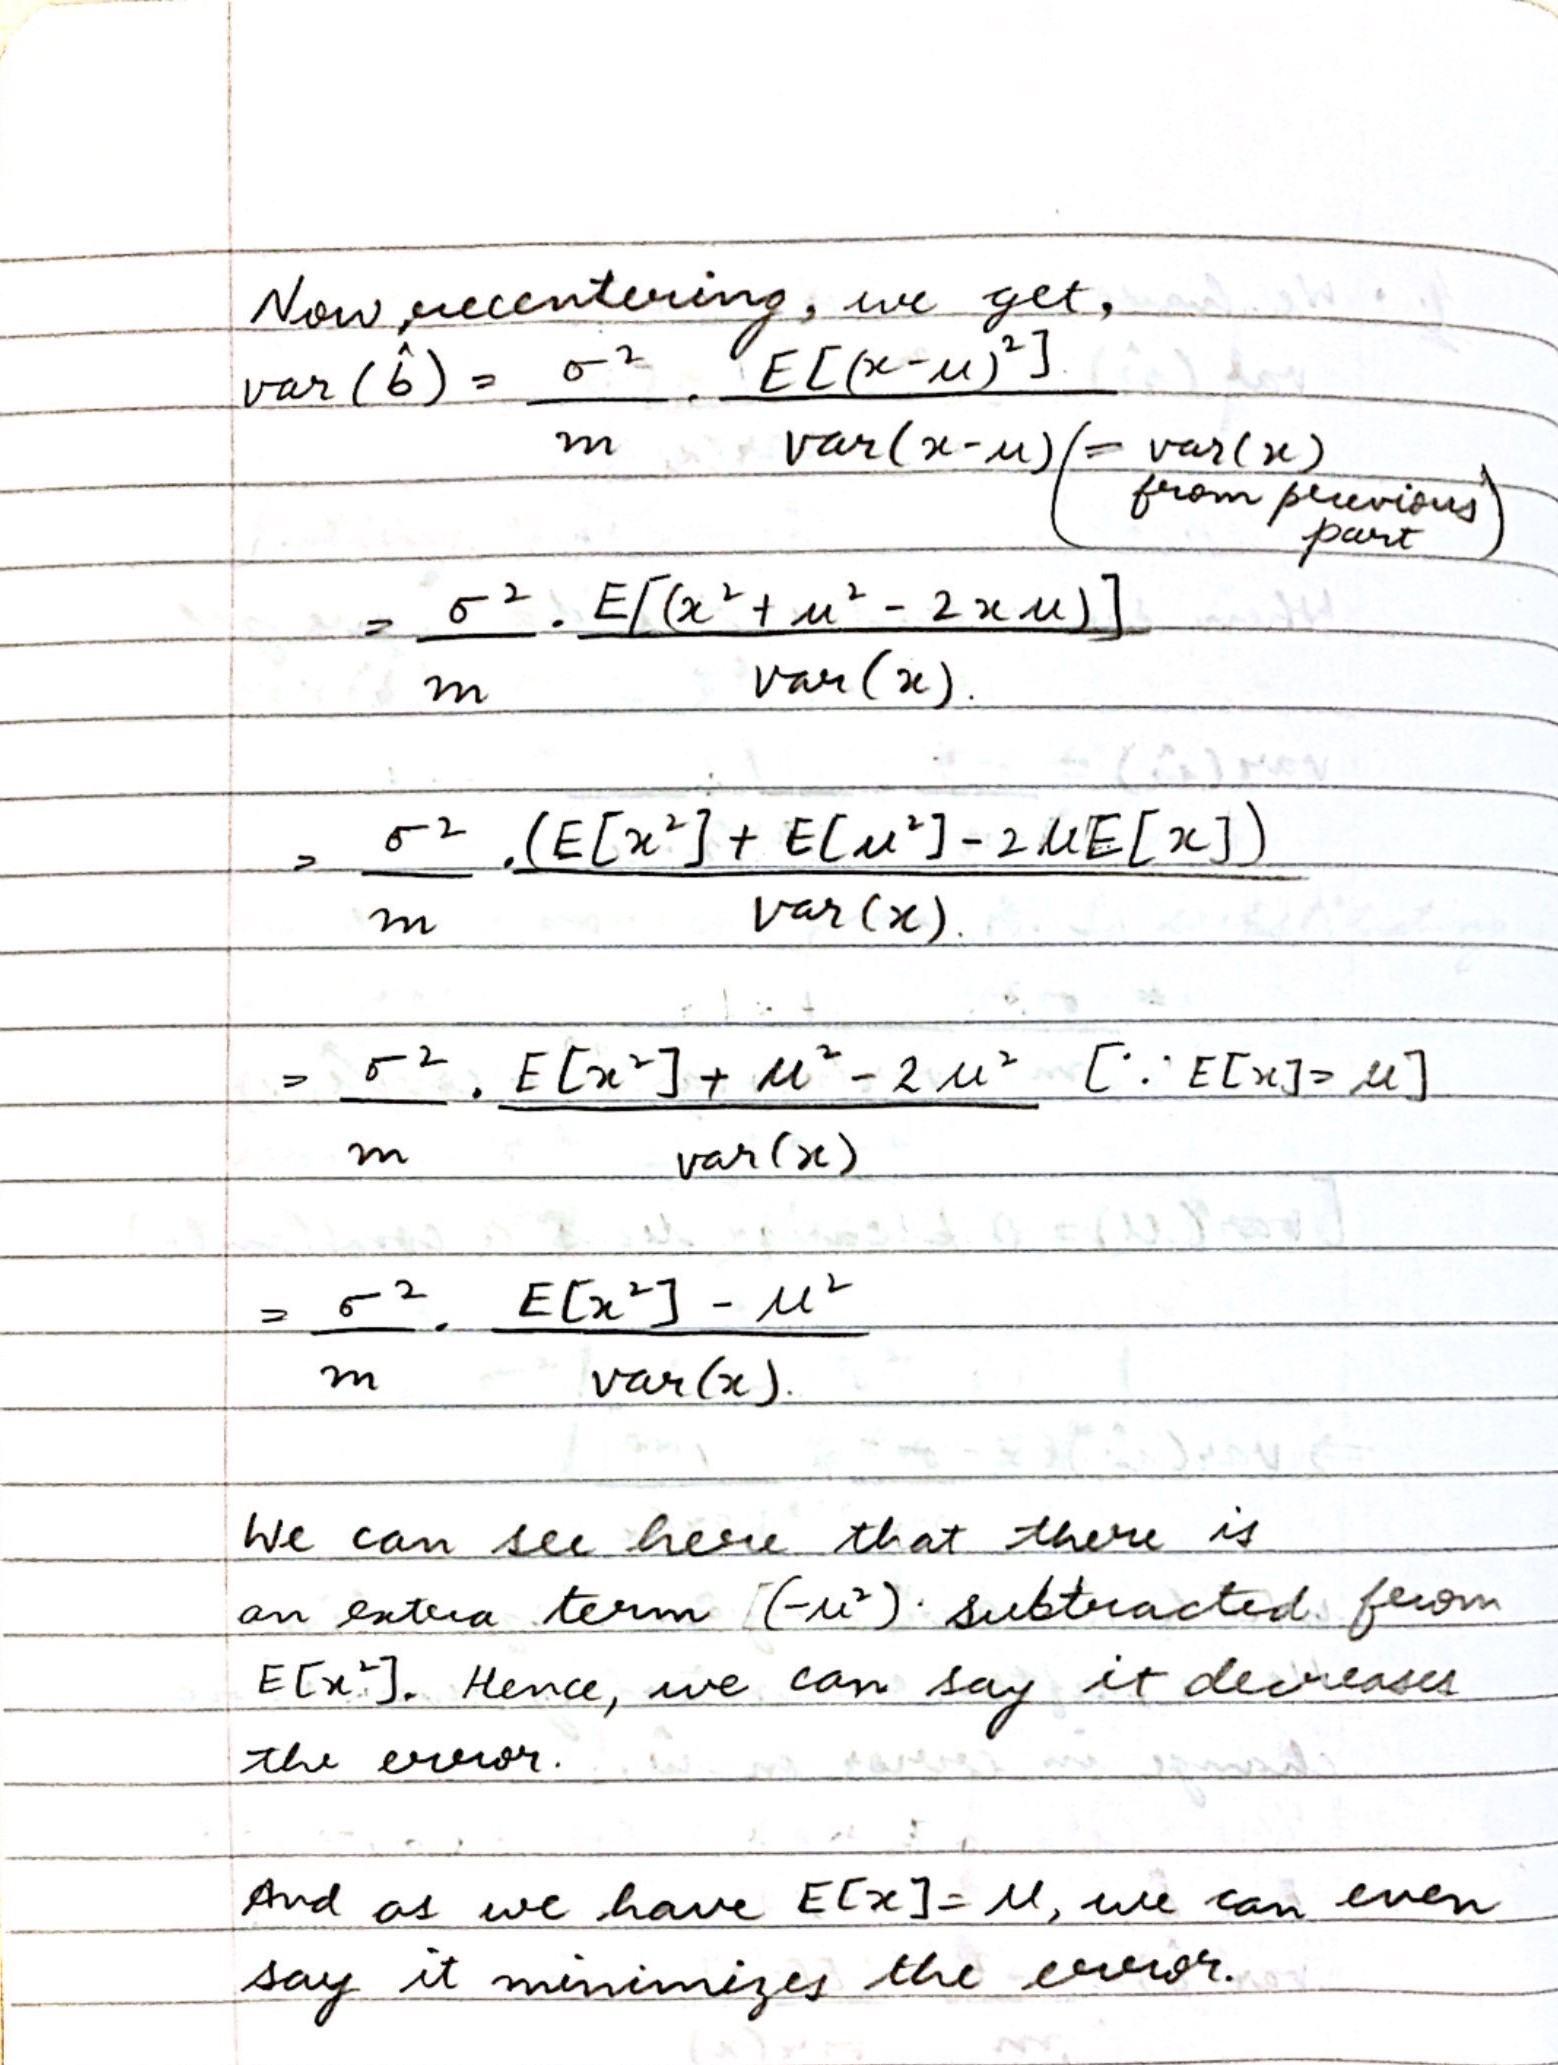 Now, recentering, we get,
var(b̂) = σ²/m · E[(x-μ)²]/var(x-μ) (= var(x) from previous part)
= σ²/m · E[(x²+μ²-2xμ)]/var(x).
= σ²/m · (E[x²]+E[μ²]-2μE[x])/var(x).
= σ²/m · E[x²]+μ²-2μ²/var(x) [∵ E[x]=μ]
= σ²/m · E[x²]-μ²/var(x).
We can see here that there is
an extra term (-μ²) subtracted from
E[x²]. Hence, we can say it decreases
the error.
And as we have E[x]=μ, we can even
say it minimizes the error.